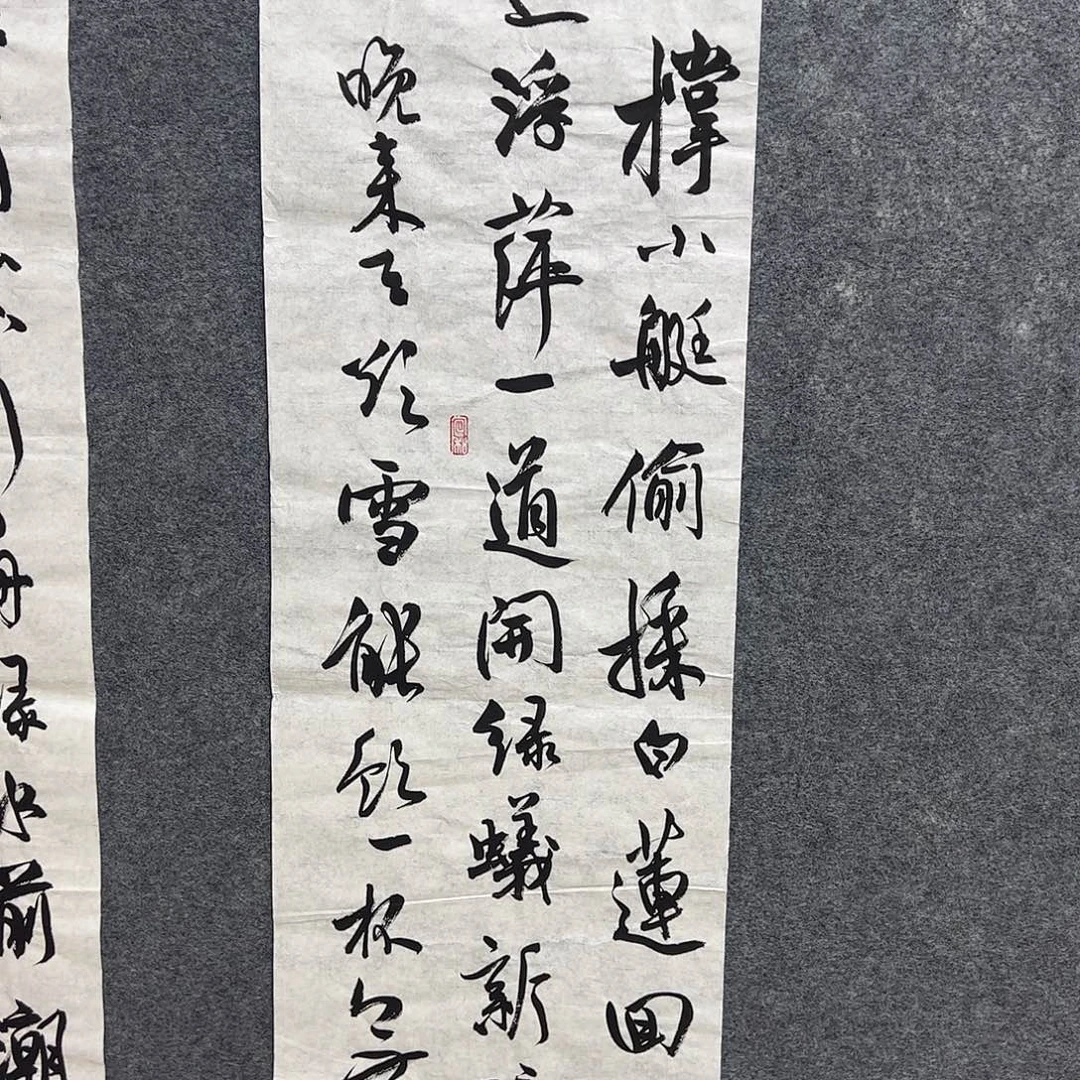 撑小艇偷採白蓮回
浮萍一道開緑蟻新
晚来天欲雪能飲一杯無
水前潮